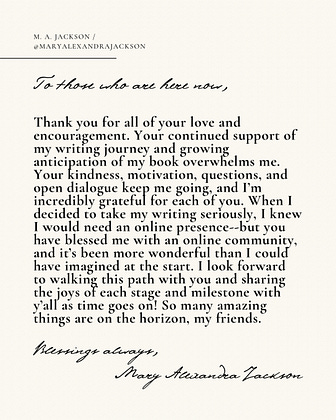 M. A. JACKSON /
@MARYALEXANDRAJACKSON
To those who are here now,
Thank you for all of your love and
encouragement. Your continued support of
my writing journey and growing
anticipation of my book overwhelms me.
Your kindness, motivation, questions, and
open dialogue keep me going, and I'm
incredibly grateful for each of you. When I
decided to take my writing seriously, I knew
I would need an online presence--but you
have blessed me with an online community,
and it's been more wonderful than I could
have imagined at the start. I look forward
to walking this path with you and sharing
the joys of each stage and milestone with
y'all as time goes on! So many amazing
things are on the horizon, my friends.
Blessings always,
Mary Alexandra Jackson